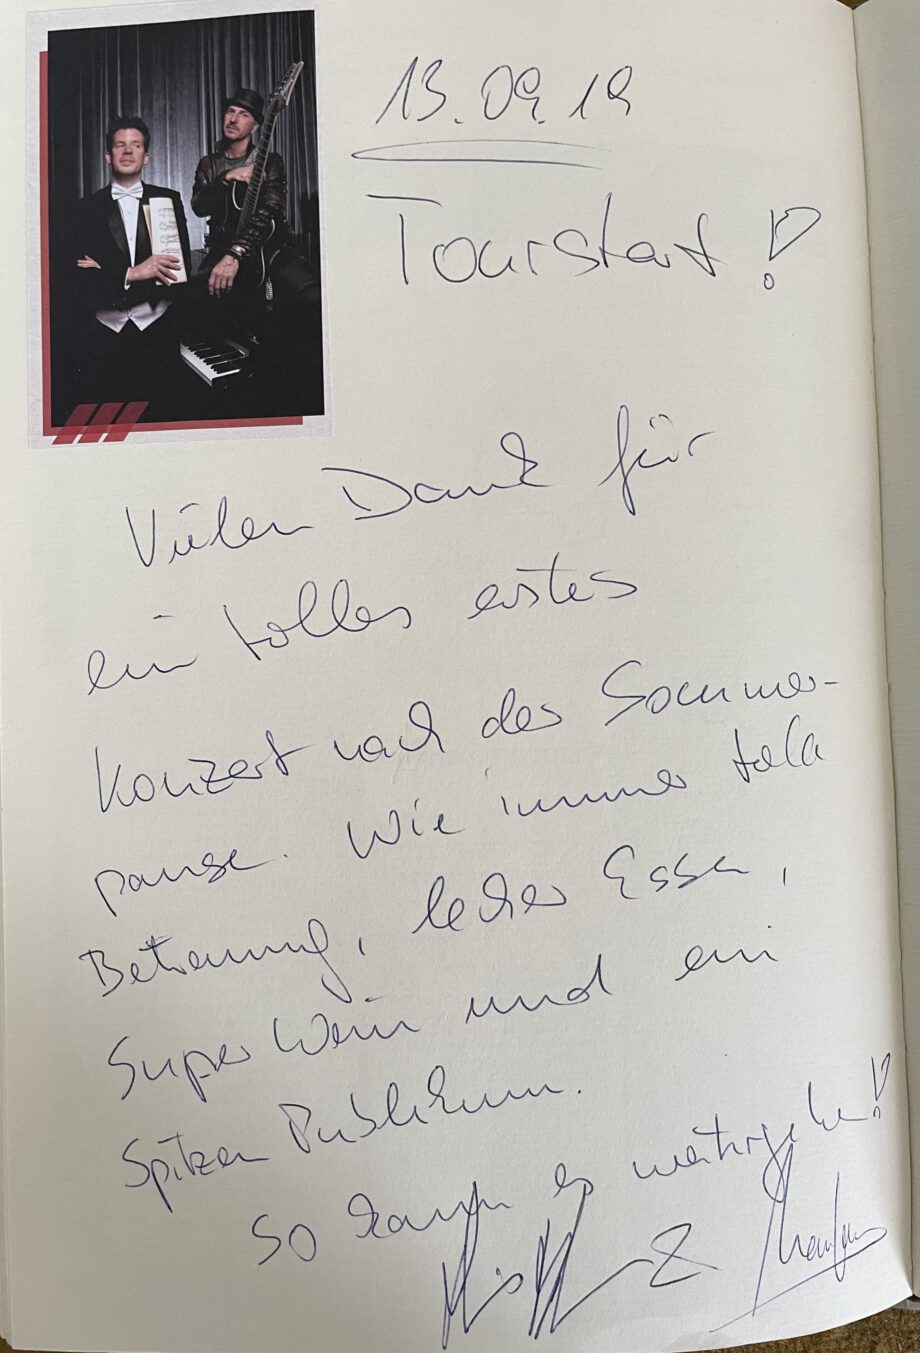 13.09.19
Tourstart!
Vielen Dank für
ein tolles erstes
Konzert nach der Sommer-
pause. Wie immer tolle
Betreuung, lecker Essen,
Super Wein und ein
Spitzen Publikum.
So kann es weitergehen!
&